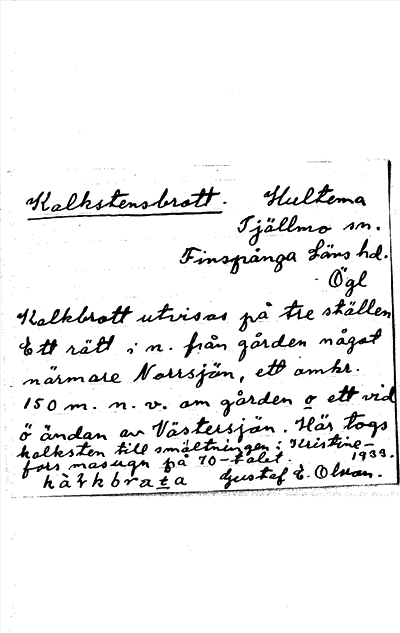 Kalkstensbrott. Hultema
Tjällmo sn.
Finspånga Läns hd.
Ögl
Kalkbrott utvisas på tre ställen
Ett rätt i n. från gården något
närmare Norrsjön, ett omkr.
150 m. n. v. om gården o ett vid
ö ändan av Västersjön. Här togs
kalksten till smältningen i Kristine-
fors masugn på 70-talet. 1933.
Gustaf E. Olsson.